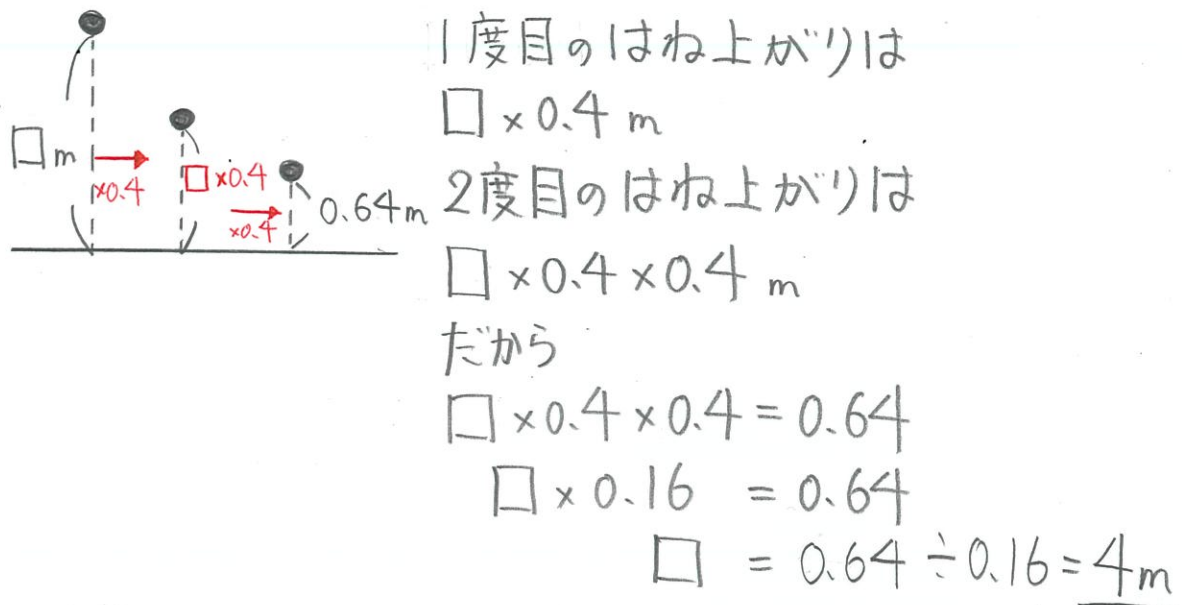 □m
×0.4
□×0.4
×0.4
0.64m
1度目のはね上がりは
□×0.4 m
2度目のはね上がりは
□×0.4×0.4 m
だから
□×0.4×0.4=0.64
□×0.16 =0.64
□ =0.64÷0.16=4m